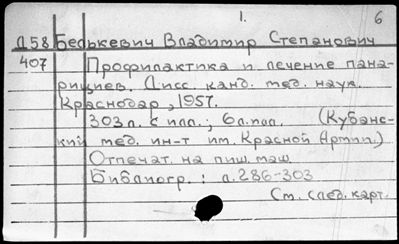 1. 6
Д58 Белькевич Владимир Степанович
407 Профилактика и лечение пана-
рициев. Дисс. канд. мед. наук.
Краснодар, 1957.
303л. с илл.; 6л.илл. (Кубанс-
кий мед. ин-т им. Красной Армии.)
Отпечат. на пиш. маш.
Библиогр.: л.286-303
См. след. карт.